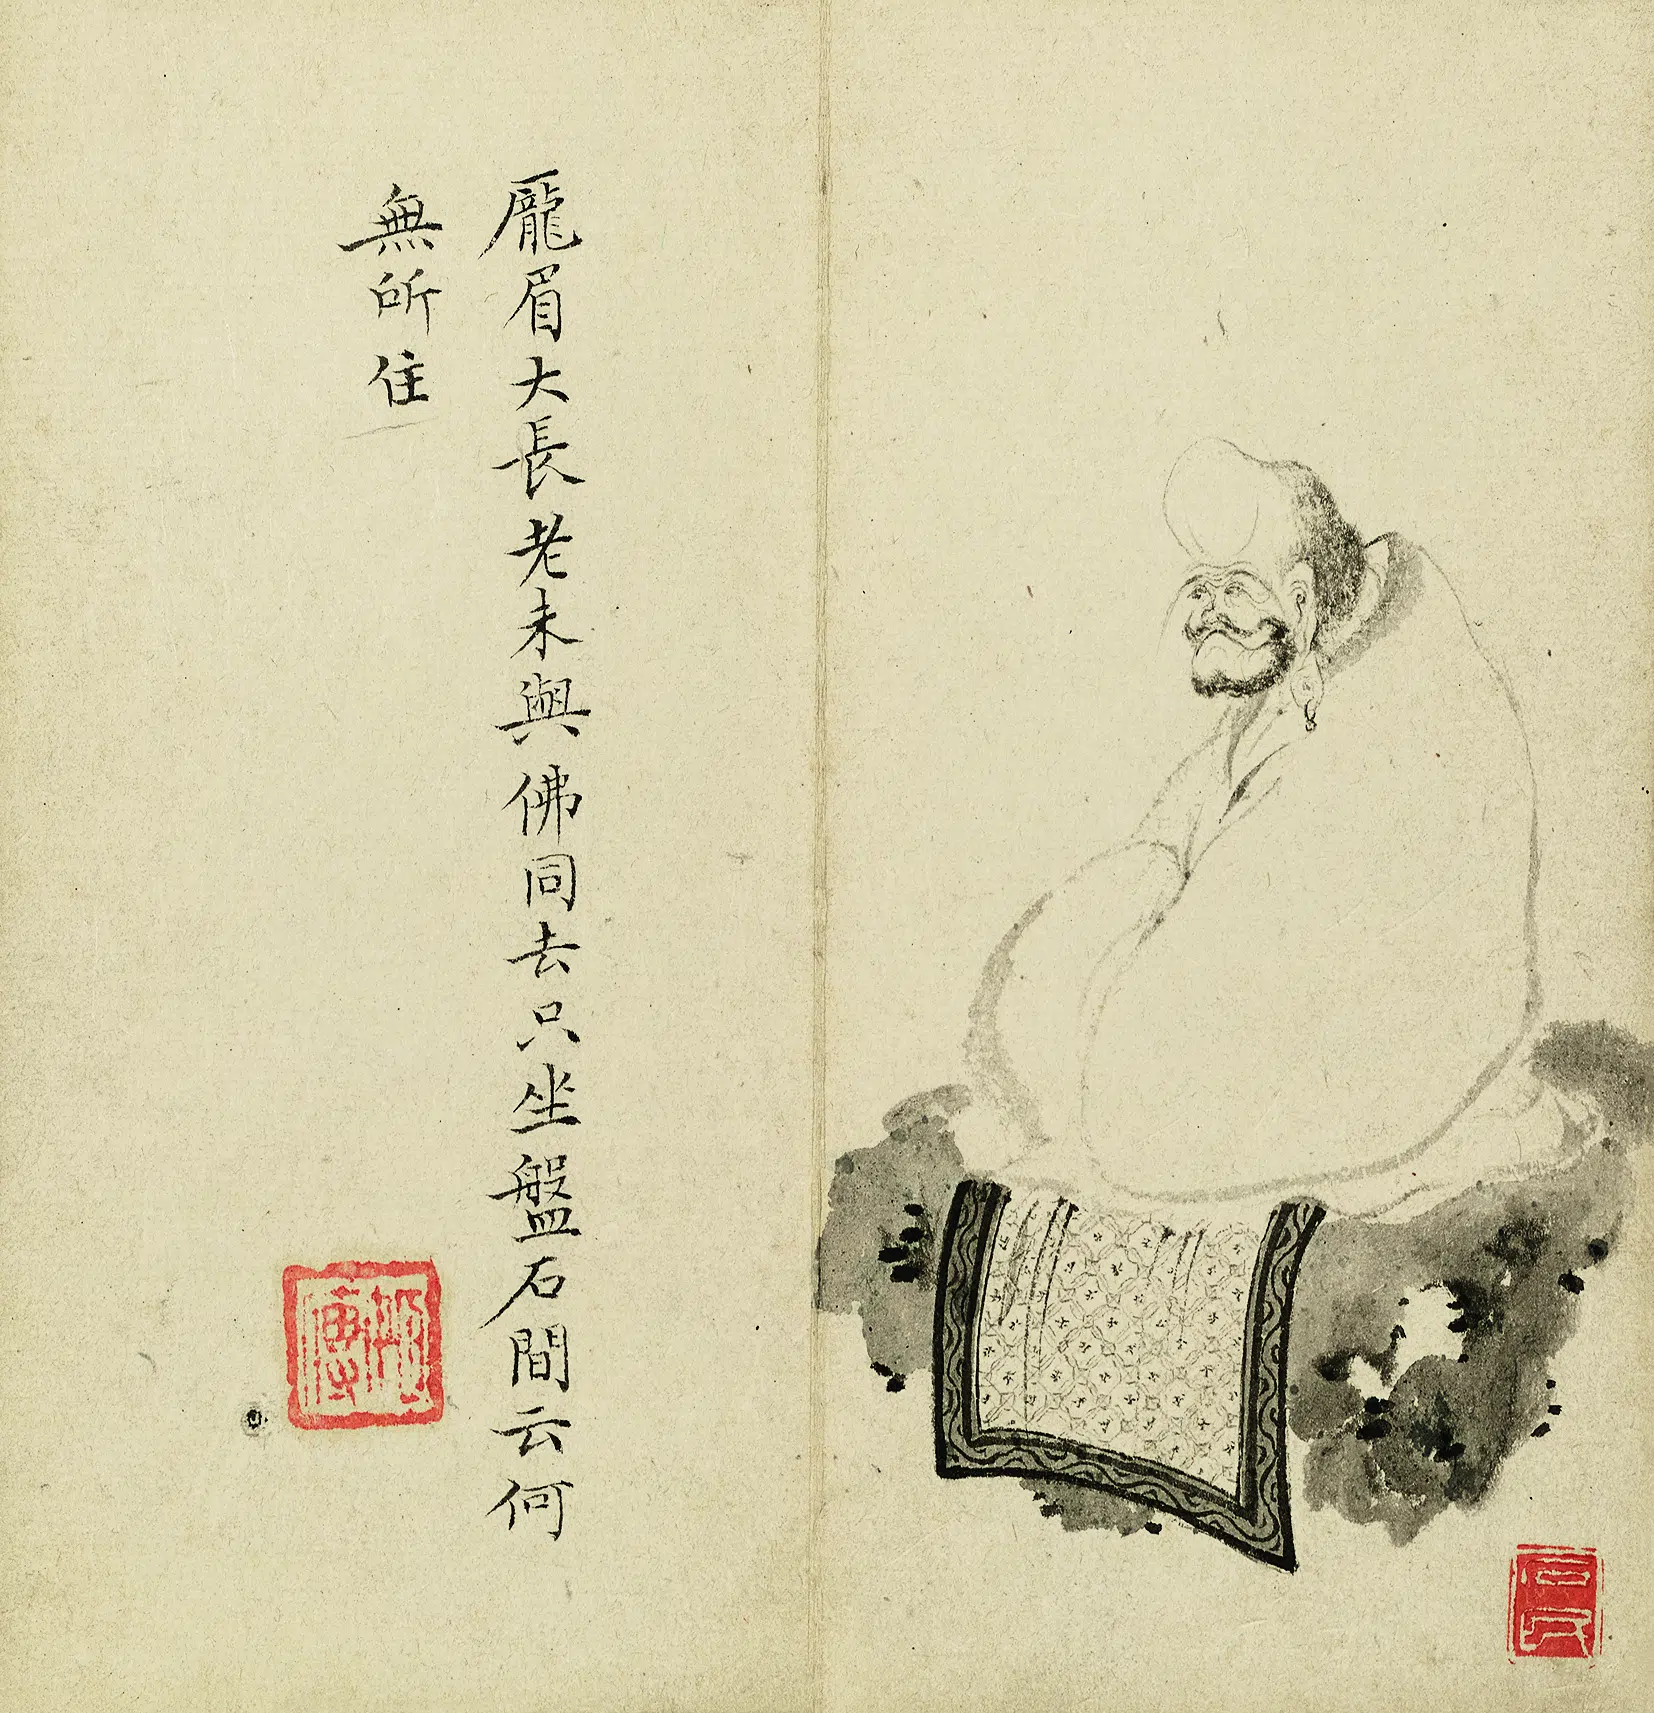 龐眉大長老未與佛同去只坐盤石間云何
無所住